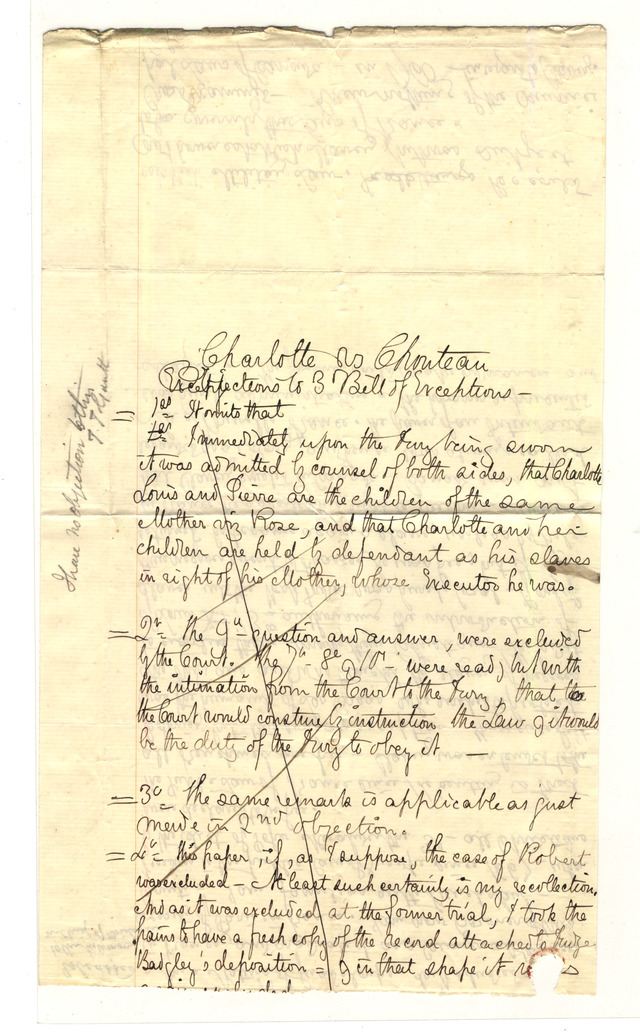 Charlotte vs Chouteau
Objections to 3 Bill of Exceptions —
1st It omits that
1st Immediately upon the Jury being sworn
it was admitted by counsel of both sides, that Charlotte
Louis and Pierre are the children of the same
Mother viz Rose, and that Charlotte and her
children are held by defendant as his slaves
in right of his Mother, whose Executor he was.
= 2d The 9th question and answer, were excluded
by the Court. The 7th 8th & 10th were read; but with
the intimation from the Court to the Jury, that
the Court would construe by instruction the Law & it would
be the duty of the Jury to obey it —
= 3d The same remark is applicable as just
made in 2nd objection.
= 4th This paper, if, as I suppose, the case of Robert
was excluded — At least such certainly is my recollection.
And as it was excluded at the former trial, I took the
pains to have a fresh copy of the record attached to Judge
Badgley's deposition = & in that shape it was
again excluded
I have no objection to this
T T Gantt